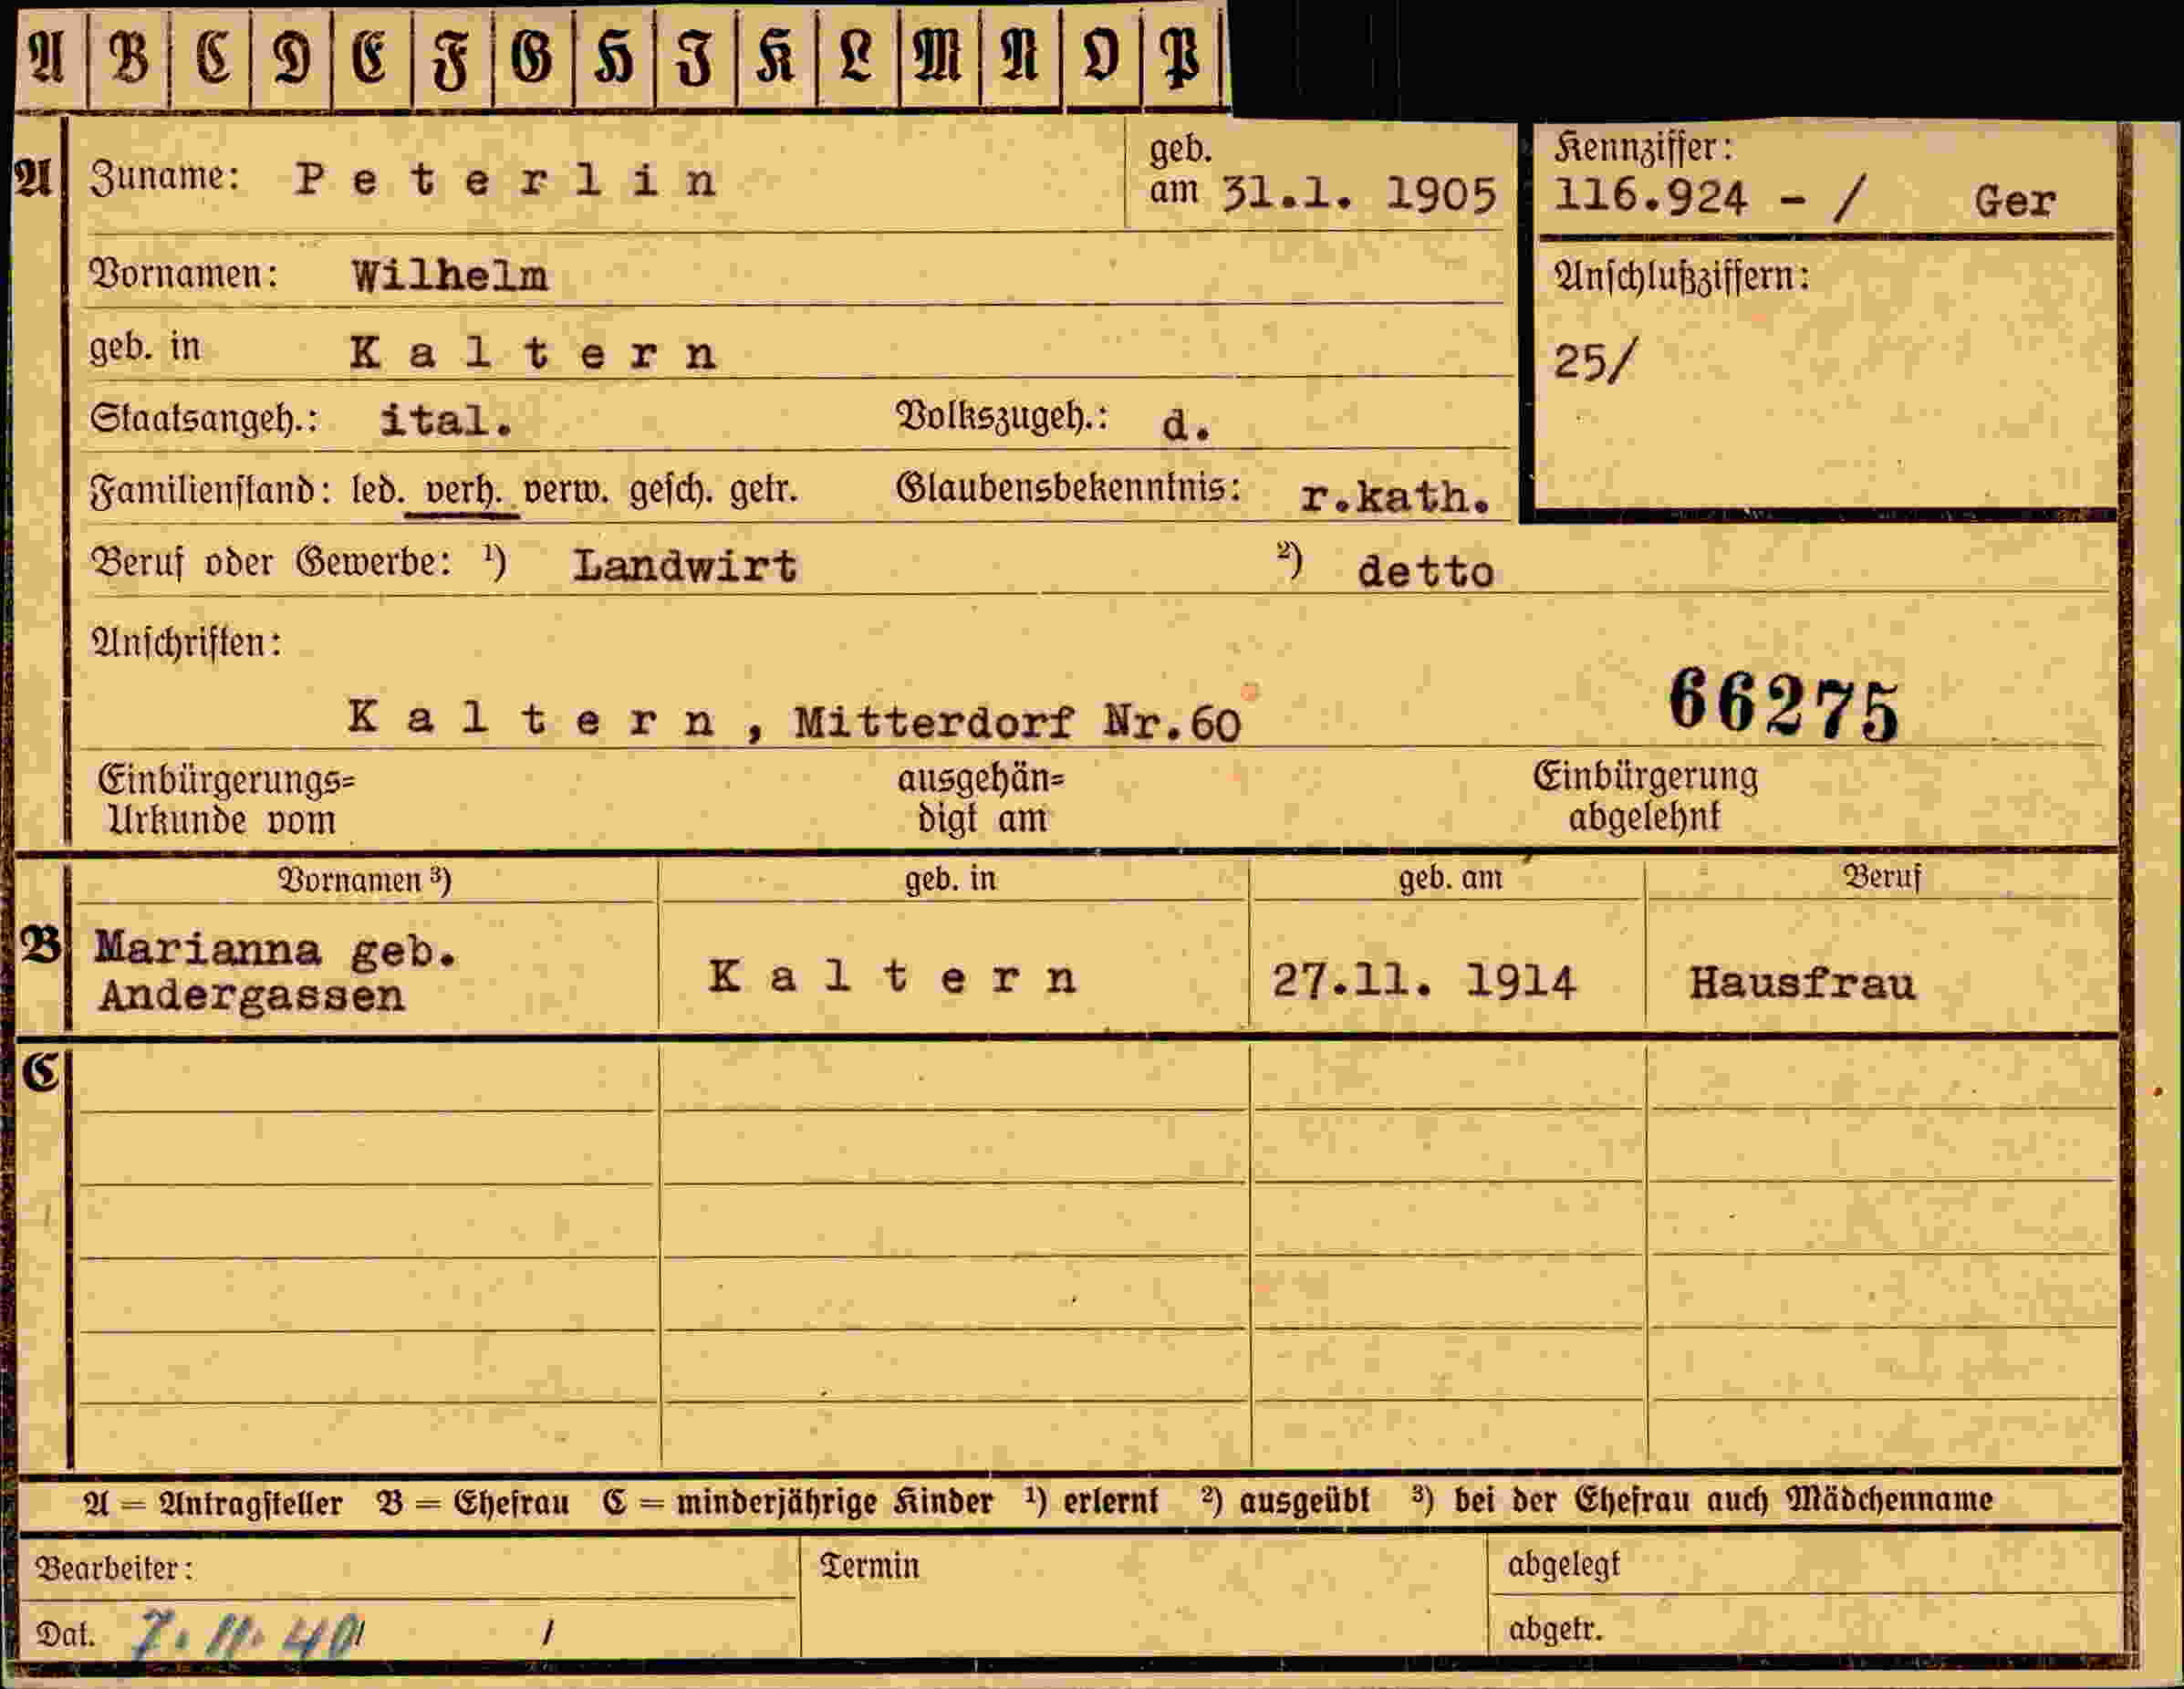 A B C D E F G H I K L M N O P
A Zuname: Peterlin geb. am 31.1. 1905 Kennziffer: 116.924 - / Ger
Vornamen: Wilhelm Anschlußziffern:
geb. in Kaltern 25/
Staatsangeh.: ital. Volkszugeh.: d.
Familienstand: led. verh. verw. gesch. getr. Glaubensbekenntnis: r.kath.
Beruf oder Gewerbe: ¹) Landwirt ²) detto
Anschriften:
66275
Kaltern, Mitterdorf Nr.60
Einbürgerungs= ausgehän= Einbürgerung
Urkunde vom digt am abgelehnt
Vornamen ³) geb. in geb. am Beruf
B Marianna geb.
Andergassen Kaltern 27.11. 1914 Hausfrau
C
A = Antragsteller B = Ehefrau C = minderjährige Kinder ¹) erlernt ²) ausgeübt ³) bei der Ehefrau auch Mädchenname
Bearbeiter: Termin abgelegt
Dat. 7.11.40 / / abgetr.